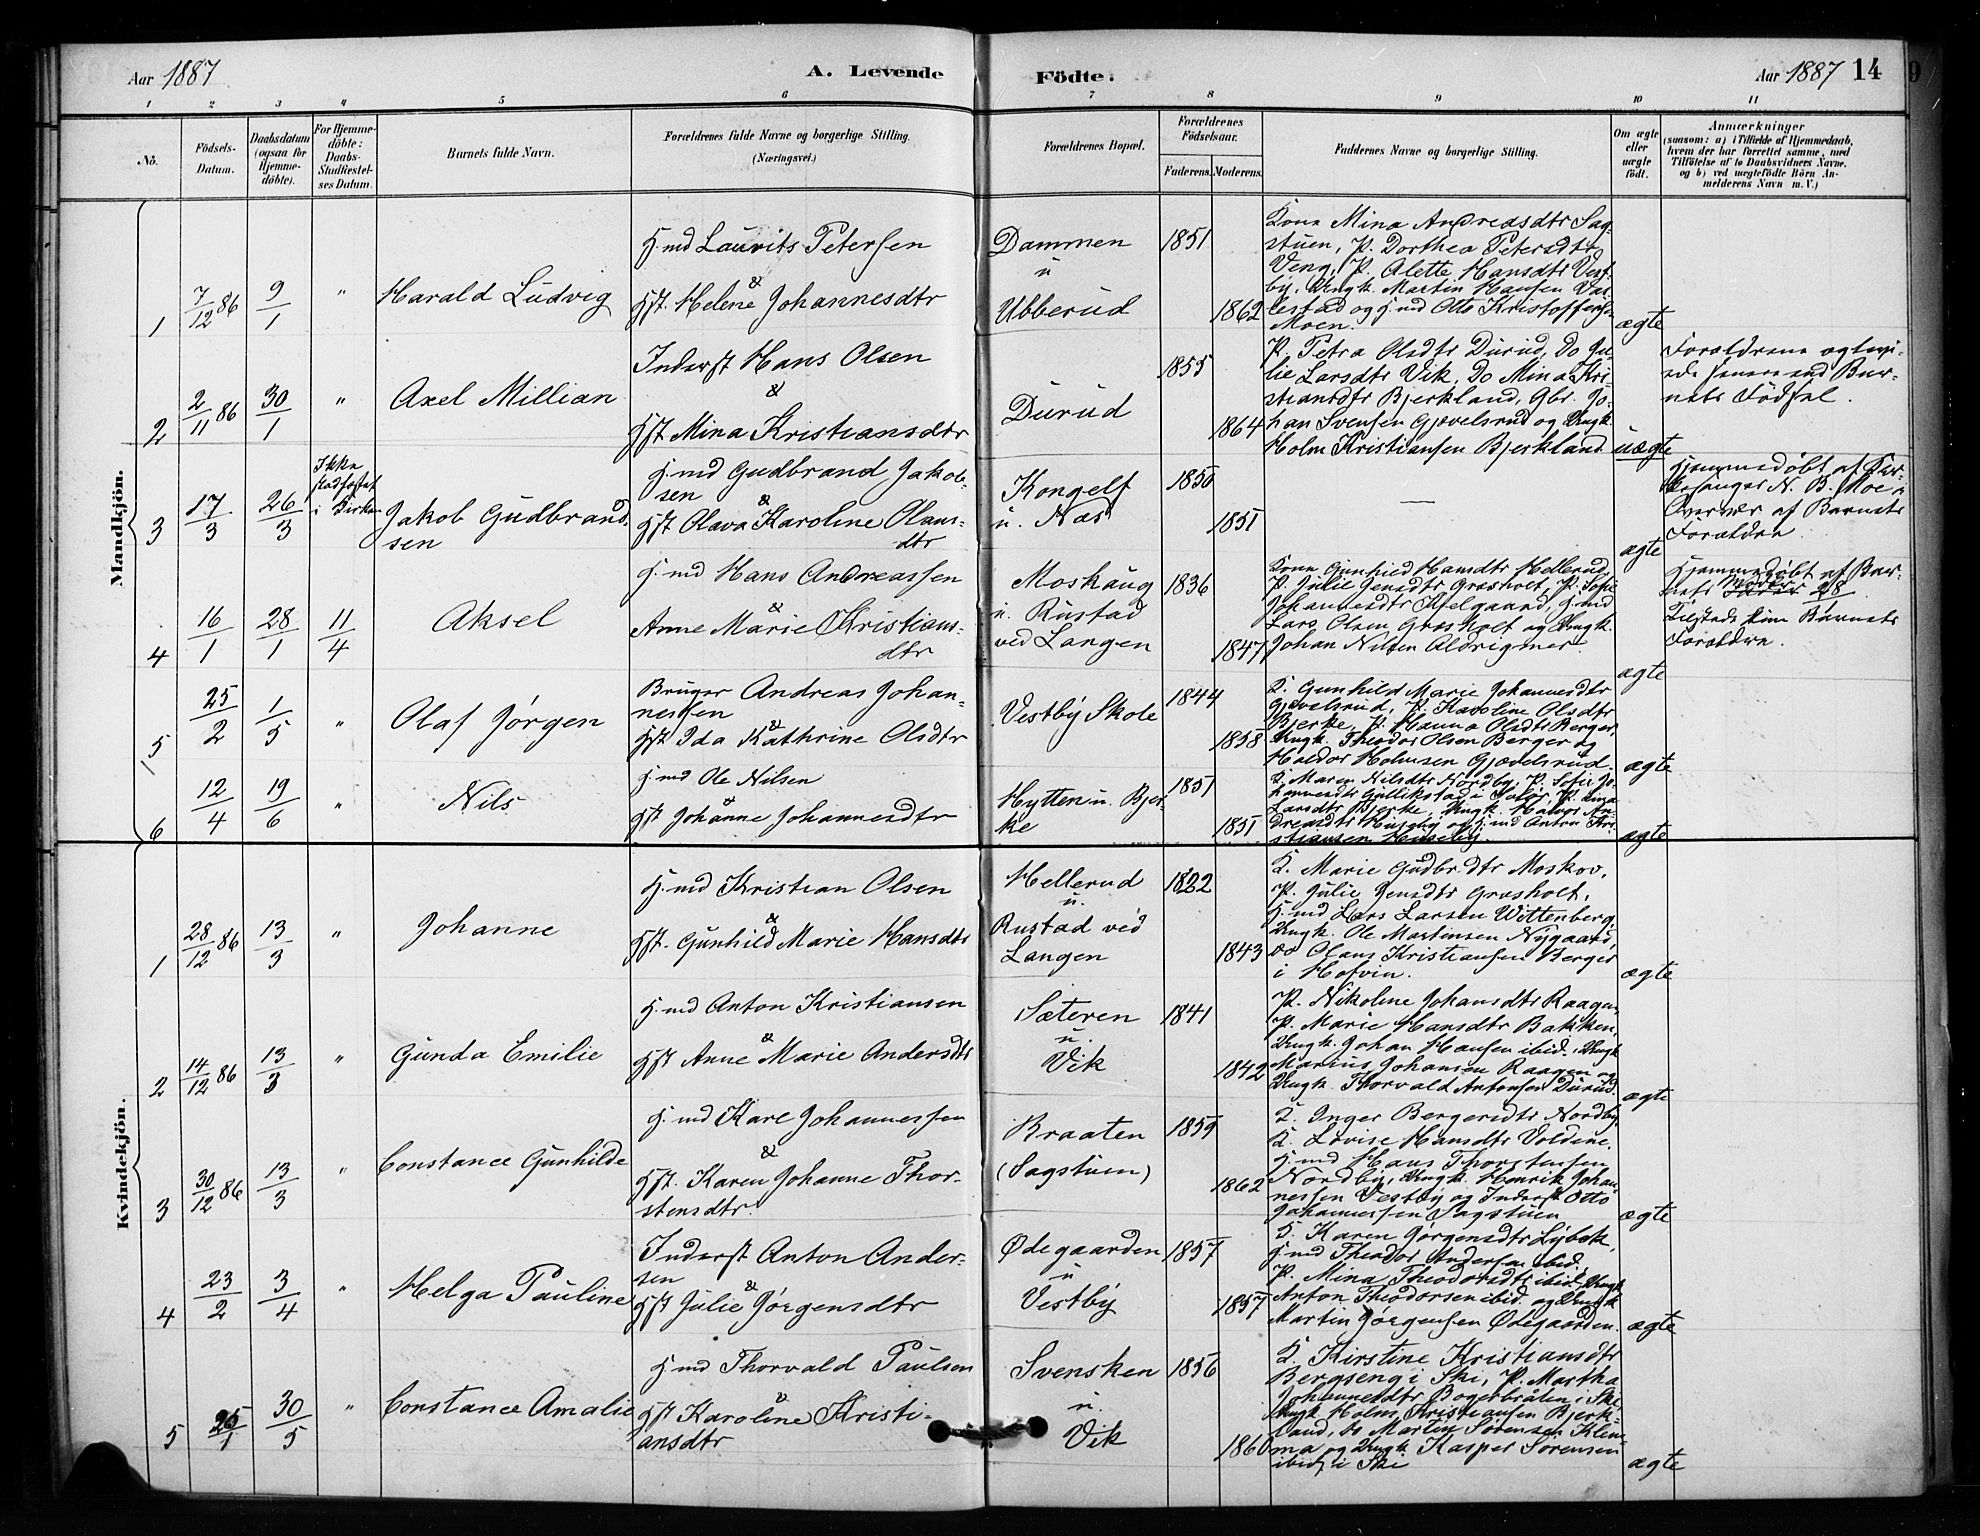 Aar 1887
A. Levende
Födte.
Aar 1887 14
9
1 2 3 4 5 6 7 8 9 10 11
No.
Födsels-Datum.
Daabsdatum (ogsaa for Hjemme-döbte).
For Hjemme-döbte: Daabs-Stadfæstel-ses Datum.
Barnets fulde Navn.
Forældrenes fulde Navne og borgerlige Stilling.
(Næringsvei.)
Forældrenes Bopæl.
Forældrenes Födselsaar.
Faderens. Moderens.
Faddernes Navne og borgerlige Stilling.
Om ægte eller uægte födt.
Anmærkninger
(saasom: a) i Tilfælde af Hjemmedaab,
hvem der har forrettet samme, med
Tilföielse af to Daabsvidners Navne,
og b) ved uægtefödte Börn An-
melderens Navn m. V.)
Mandkjön.
1
7/12 86
9/1
"
Harald Ludvig
H.md Laurits Petersen
&
Hst. Helene Johannesdtr
Dammen
u
Ubberud
1851
1862
Kone Mina Andreasdtr Sag-
stuen, P. Dorthea Petersdtr
Veng, P. Alette Hansdtr Vest-
by, Ungk. Martin Hansen
og H.md Otto Kristoffersen
Moen.
ægte
2
2/11 86
30/1
"
Axel Millian
Inderst Hans Olsen
&
Hst Mina Kristiansdtr
Durud
1855
1864
P. Petra Olsdtr Durud, Do Ju-
lie Larsdtr Vik, Do Mina Kri-
stiansdtr Bjerkland, Gbr. Jo-
han Svensen Gjævelsrud og Ungk.
Holm Kristiansen Bjerkland.
uægte
Forældrene ægtevi-
ede senere end Bar-
nets Födsel.
3
17/3
26/3
Ikke
stadfæstet
i Kirken
Jakob Gudbrand-
sen
H.md Gudbrand Jakob-
sen
&
Hst Olava Karoline Olaus-
dtr
Kongelf
u. Næs
1850
1851
—
ægte
Hjemmedöbt af
N. B. Moe i
Overvær af Barnets
Forældre.
4
16/1
28/1
11/4
Aksel
H.md Hans Andreassen
&
Anne Marie Kristians-
dtr
Moskaug
u. Rustad
ved Langen
1836
1847
Kone Gunhild Hansdtr Hellerud,
P. Julie Jensdtr Græsholt, P. Sofie
Johannesdtr H.md
Lars Olsen Græsholt og Ungk.
Johan Nilsen Aldrigmer.
ægte
Hjemmedöbt af Bar-
nets Moder 28
Tilstede kun Barnets
Forældre.
5
25/2
1/5
"
Olaf Jørgen
Bruger Andreas Johan-
nessen
&
Hst Ida Kathrine Olsdtr
Vestby Skole
1844
1858
K. Gunhild Marie Johannesdtr
Gjævelsrud, P. Karoline Olsdtr
Bjerke, P. Hanna Olsdtr Berger,
Ungk. Theodor Olsen Berger og
Haldor Holmsen Gjævelsrud.
ægte
6
12/4
19/6
"
Nils
H.md Ole Nilsen
&
Hst Johanne Johannesdtr
Hytten u. Bjer
ke
1851
1851
K. Maren Nilsdtr Nordby, P. Sofie Jo-
hannesdtr Gullikstad i
Larsdtr Bjerke, Ungk. Halvor An-
og H.md Anton Kri-
stiansen Huseby.
ægte
Kvindekjön.
1
28/12 86
13/3
"
Johanne
H.md Kristian Olsen
&
Hst. Gunhild Marie Hansdtr
Hellerud
u.
Rustad ved
Langen
1822
1843
K. Marie Gudbr.dtr Moskov,
P. Julie Jensdtr Græsholt,
H.md Lars Larsen Wittenberg,
Ungk. Ole Martinsen Nygaard,
do Olaus Kristiansen Berger
i Hofvin.
ægte
2
14/12 86
13/3
"
Gunda Emilie
H.md Anton Kristiansen
&
Hst Anne Marie Andersdtr
Sæteren
u.
Vik
1841
1842
P. Nikoline Johansdtr Raagen,
P. Marie Hansdtr Bakken,
Ungk. Johan Hansen ibid., Ungk
Marius Johansen Raagen og
Ungk. Thorvald Antonsen Durud.
ægte
3
30/12 86
13/3
"
Constance Gunhilde
H.md Karl Johannessen
&
Hst. Karen Johanne Thor-
stensdtr.
Braaten
(Sagstuen)
1859
1862
K. Inger Bergersdtr Nordby,
K. Lovise Hansdtr Voldine,
H.md Hans Thorstensen
Nordby, Ungk. Henrik Johan-
nessen Vestby og Inderst Otto
Johannessen Sagstuen
ægte
4
23/2
3/4
"
Helga Pauline
Inderst Anton Ander-
sen
&
Hst Julie Jørgensdtr
Ødegaarden
u
Vestby
1857
1857
K. Karen Jørgensdtr Lybek,
H.md Theodor Andersen ibid.
P. Mina Theodorsdtr ibid., Ungk
Anton Theodorsen ibid. og Ungk
Martin Jörgensen Ødegaarden.
ægte
5
25/1
30/5
"
Constance Amalie
H.md Thorvald Paulsen
&
Hst Karoline Kristi-
ansdtr
Svensken
u.
Vik
1856
1860
K. Kirstine Kristiansdtr
Bergseng i Ski, P. Martha
Johannesdtr Bogerbråten i Ski
Ungk. Holm Kristiansen Bjerk-
land, do Martin Sørensen Klem-
ma og Ungk Kasper Sørensen
ibid, i Ski
ægte